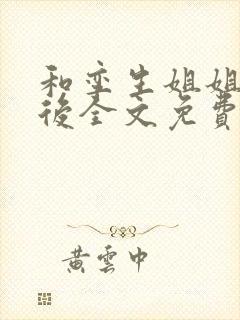 和孪生姐姐
後全文免費
黃雲中